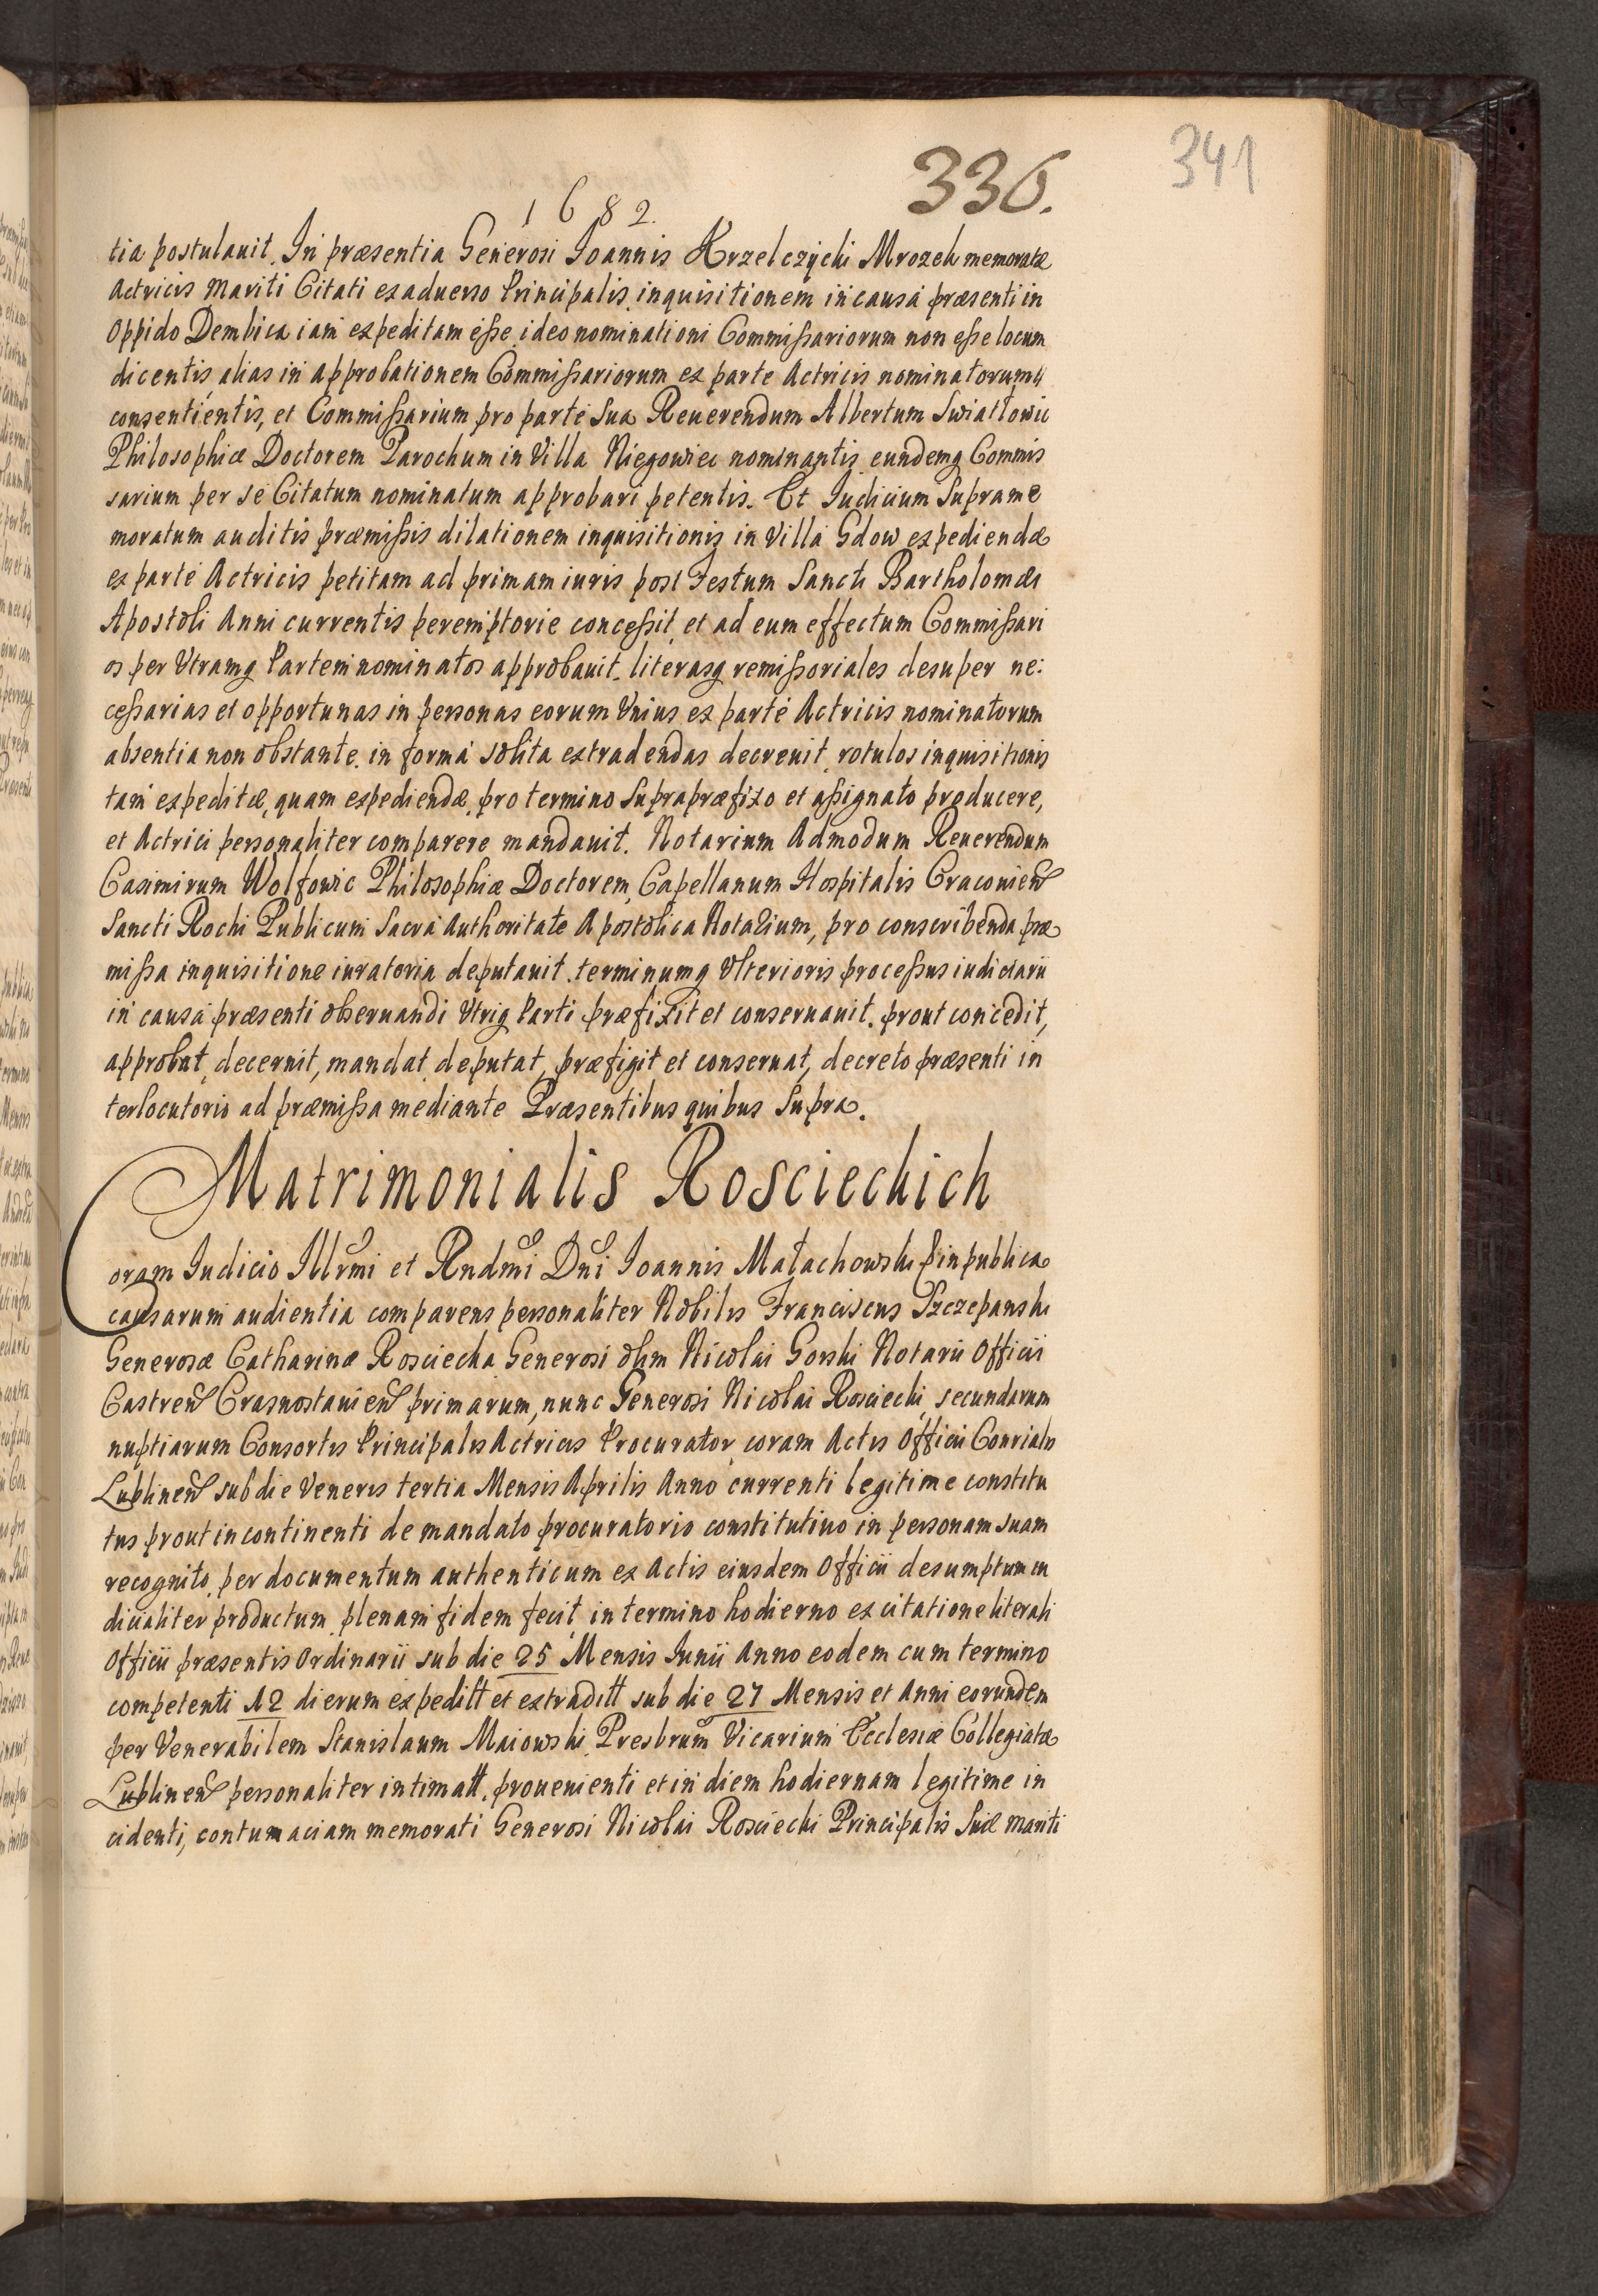 341
336.
1682.
tia postulauit. In præsentia Generosi Ioannis Krzelczycki Mrozek memoratæ
Actricis Mariti Citati ex aduerso Principalis, inquisitionem in causa præsenti in
Oppido Dembica iam expeditam esse, ideo nominationi Commissariorum non esse locum
dicentis, alias in approbationem Commissariorum ex parte Actricis nominatorum
consentientis, et Commissarium pro parte Sua Reuerendum Albertum Swiatłowic
Philosophiæ Doctorem Parochum in Villa Niegowiec nominantis, eundemq Commis
sarium per se Citatum nominatum approbari petentis. Et Iudicium Suprame
moratum auditis præmissis dilationem inquisitionis in Villa Gdow expediendæ
ex parte Actricis petitam ad primam iuris post Festum Sancti Bartholomæi
Apostoli Anni currentis peremptorie concessit, et ad eum effectum Commissari
os per Vtramq Partem nominatos approbauit, literasq remissoriales desuper ne:
cessarias et opportunas in personas eorum Vnius ex parte Actricis nominatorum
absentia non obstante, in forma solita extradendas decreuit, rotulos inquisitionis
tam expeditæ, quam expediendæ, pro termino Supra præfixo et assignato producere,
et Actrici personaliter comparere mandauit. Notarium Admodum Reuerendum
Casimirum Wolfowic Philosophiæ Doctorem, Capellanum Hospitalis Cracouien
Sancti Rochi Publicum Sacra Authoritate Apostolica Notarium, pro conscribenda præ
missa inquisitione iuratoria deputauit, terminumq Vlterioris processus iudiciarii
in causa præsenti obseruandi Vtriq Parti præfixit et conseruauit, prout concedit,
approbat, decernit, mandat, deputat, præfigit et conseruat, decreto præsenti in
terlocutorio ad præmissa mediante Præsentibus quibus Supra.
Matrimonialis Roscieckich
Coram Iudicio Illrmi et Rndmi Dni Ioannis Małachowski in publica
causarum audientia comparens personaliter Nobilis Franciscus Szczepanski
Generosæ Catharinæ Rosciecka Generosi olim Nicolai Gorski Notarii Officii
Castren Crasnostauien primarum, nunc Generosi Nicolai Rosciecki, secundarum
nuptiarum Consortis Principalis Actricis Procurator, coram Actis Officii
Lublinen sub die Veneris tertia Mensis Aprilis Anno currenti legitime constitu
tus prout in continenti de mandato procuratorio constitutiuo in personam suam
recognito, per documentum authenticum ex Actis eiusdem Officii desumptum iu
dicialiter productum, plenam fidem fecit, in termino hodierno ex citatione literali
Officii præsentis Ordinarii sub die 25 Mensis Iunii Anno eodem cum termino
competenti 12 dierum expeditt et extraditt sub die 27 Mensis et Anni eorundem
per Venerabilem Stanislaum Maiowski Presbrum Vicarium Ecclesiæ Collegiatæ
Lublinen personaliter intimatt, prouenienti et in diem hodiernam legitime in
cidenti, contumaciam memorati Generosi Nicolai Rosciecki Principalis Suæ mariti